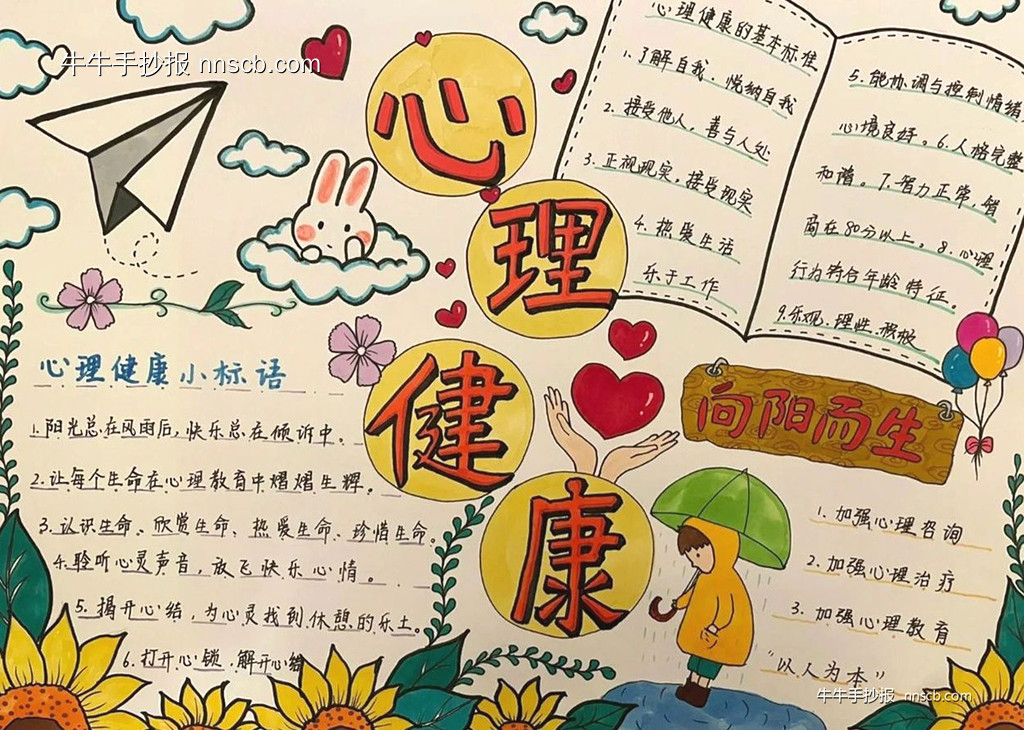 牛牛手抄报 nnscb.com
心理健康
心理健康的基本标准
1.了解自我、悦纳自我
2.接受他人,善与人处
3.正视现实,接受现实
4.热爱生活
乐于工作
5.能协调与控制情绪
心境良好。6.人格完整
和谐。7.智力正常,智
商在80分以上。8.心理
行为符合年龄特征。
9.乐观、理性、积极
心理健康小标语
1.阳光总在风雨后,快乐总在倾诉中。
2.让每个生命在心理教育中熠熠生辉。
3.认识生命、欣赏生命、热爱生命、珍惜生命。
4.聆听心灵声音,放飞快乐心情。
5.揭开心结,为心灵找到休憩的乐土。
6.打开心锁,解开心结
向阳而生
1.加强心理咨询
2.加强心理治疗
3.加强心理教育
"以人为本"
牛牛手抄报 nnscb.com